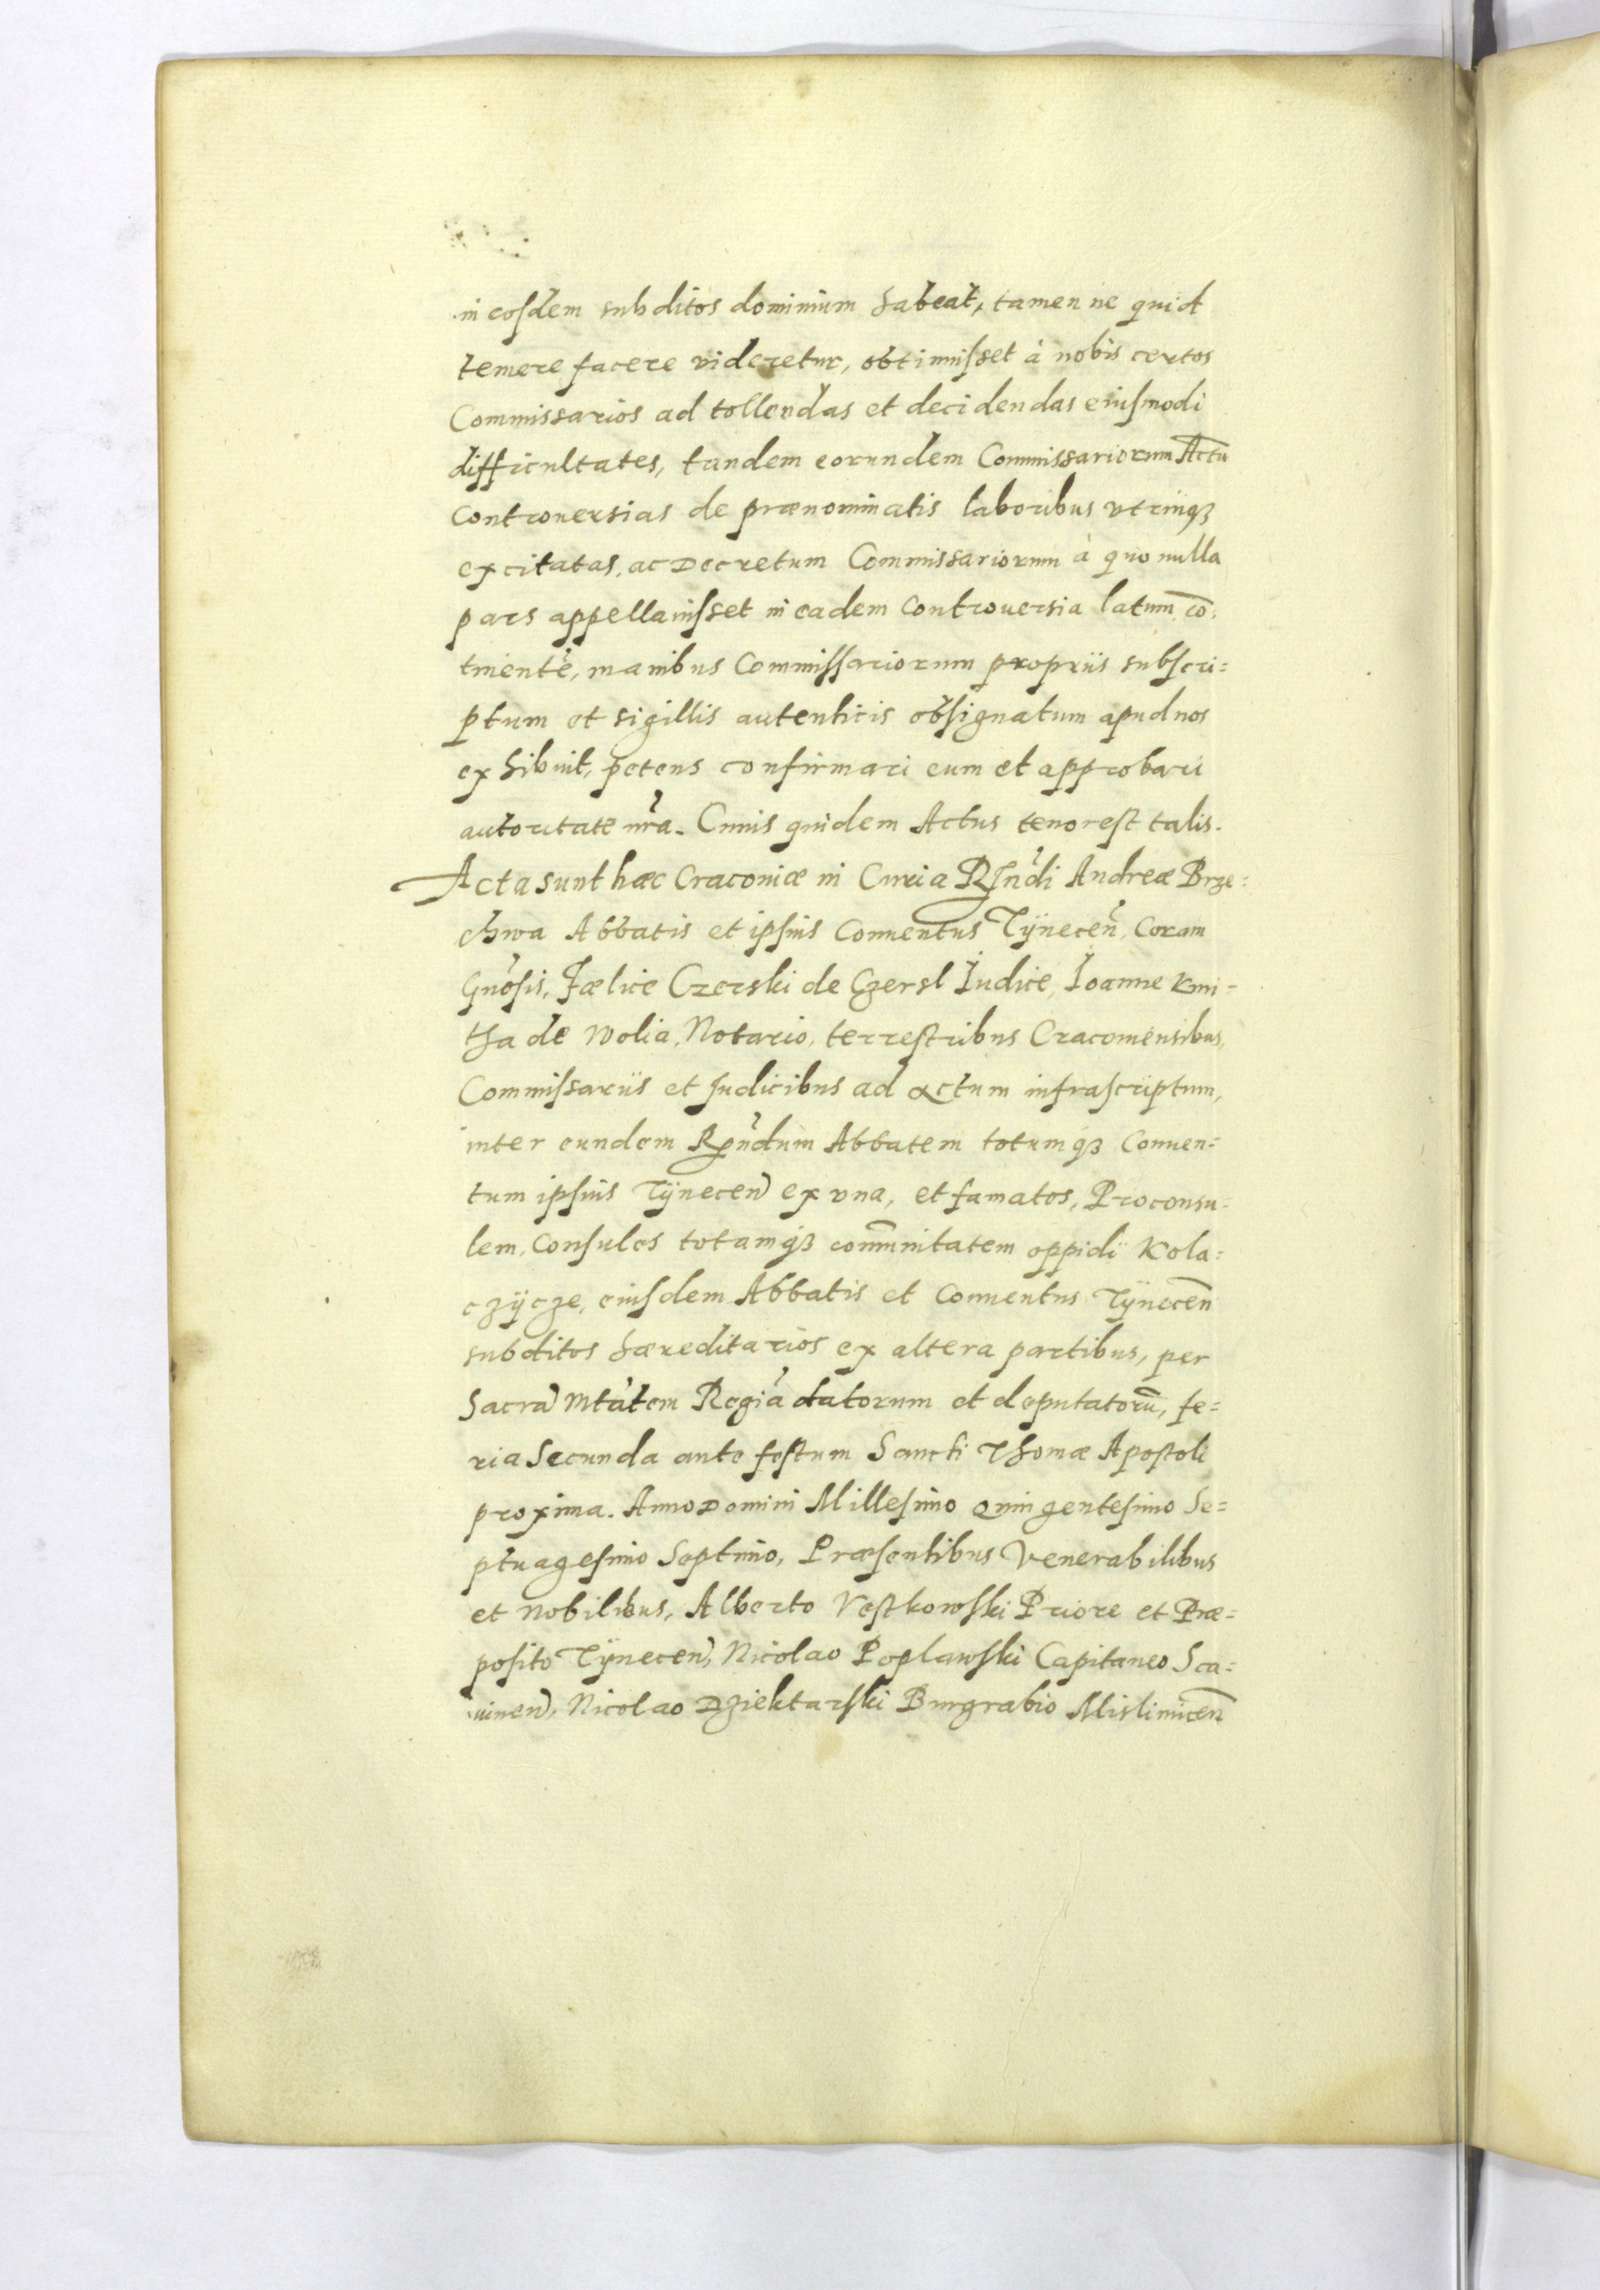 in eosdem subditos dominium habeat, tamen ne quid
temere facere videretur, obtinuisset à nobis certos
Commissarios ad tollendas et decidendas eiusmodi
difficultates, tandem eorundem Commissariorum Actū
controuersias de prænominatis laboribus vtrinqꝫ
excitatas, ac Decretum Commissariorum à quo nulla
pars appellauisset in eadem controuersia latum cō,
tinentē, manibus Commissariorum proprijs subscri=
ptum et sigillis autenticis obsignatum apud nos
exhibuit, petens confirmari eum et approbari
autoritate nr̃a. Cuius quidem Actus tenor est talis.
Acta sunt hæc Craconiæ in Curia Rn̄di Andreæ Brze=
chwa Abbatis et ipsius Conuentus Tÿnecen̄, Coram
Gn̄osis, Fælice Czerski de Czersl Iudice, Ioanne Kmi=
tha de Wolia, Notario, terrestribus Cracouiensibus,
Commissarijs et Iudicibus ad actum infrascriptum,
inter eundem Rn̄dum Abbatem totumqꝫ Conuen=
tum ipsius Tÿnecen̄ ex vna, et famatos, Proconsu=
lem, Consules totamqꝫ com̄unitatem oppidi Kola=
czÿcze, eiusdem Abbatis et Conuentus Tÿnecen̄
subditos hæreditarios ex altera partibus, per
Sacrā Mtātem Regiā datorum et deputatorū, fe=
ria Secunda ante festum Sancti Thomæ Apostoli
proxima. Anno Domini Millesimo Quingentesimo Se=
ptuagesimo Septimo, Præsentibus Venerabilibus
et Nobilibus, Alberto Vestkowski Priore et Præ=
posito Tÿnecen̄, Nicolao Poplawski Capitaneo Sca=
uinen̄, Nicolao Dziektarski Burgrabio Mislimicen̄